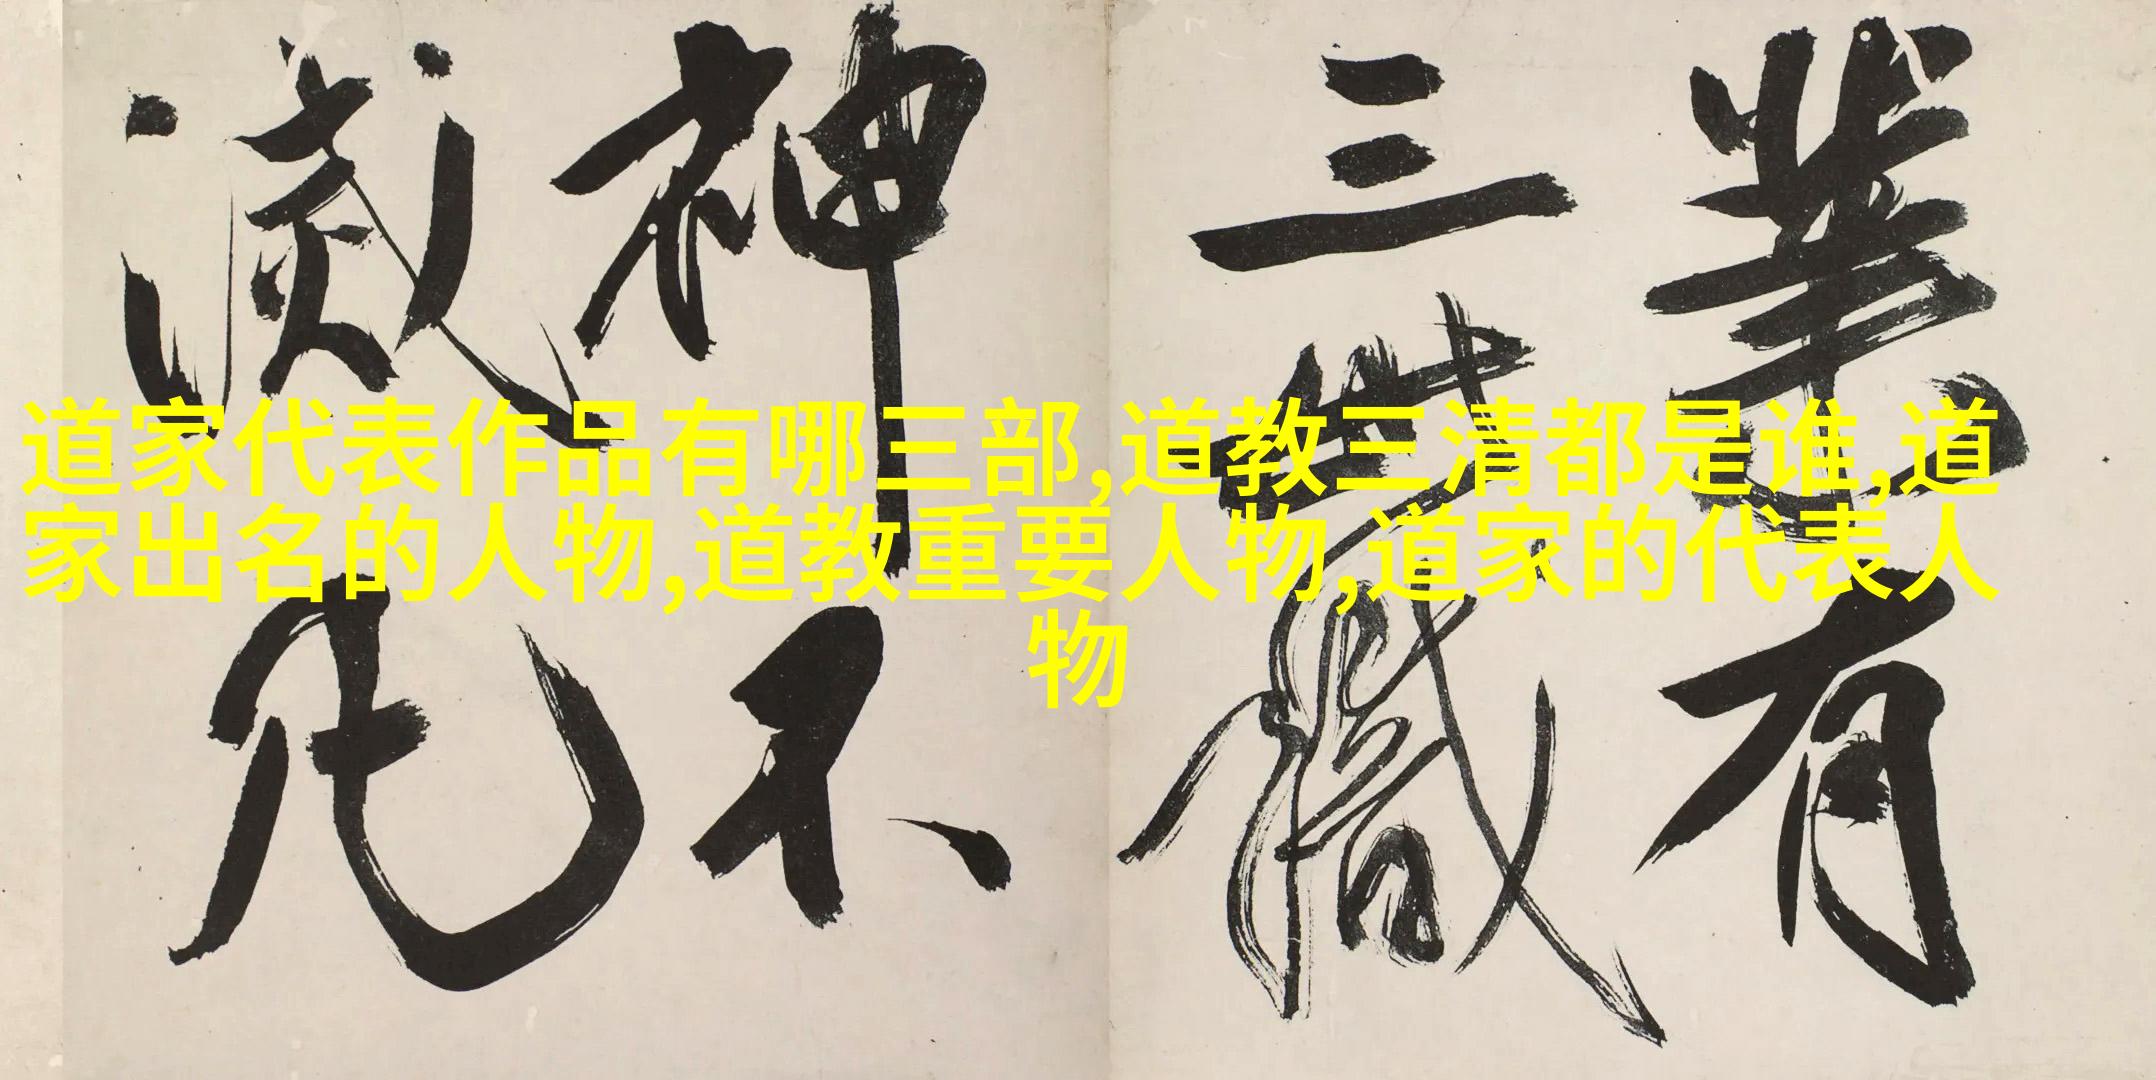 業有
三世識
神不
滅凡
道家代表作品有哪三部,道教三清都是谁,道
家出名的人物,道教重要人物,道家的代表人
物